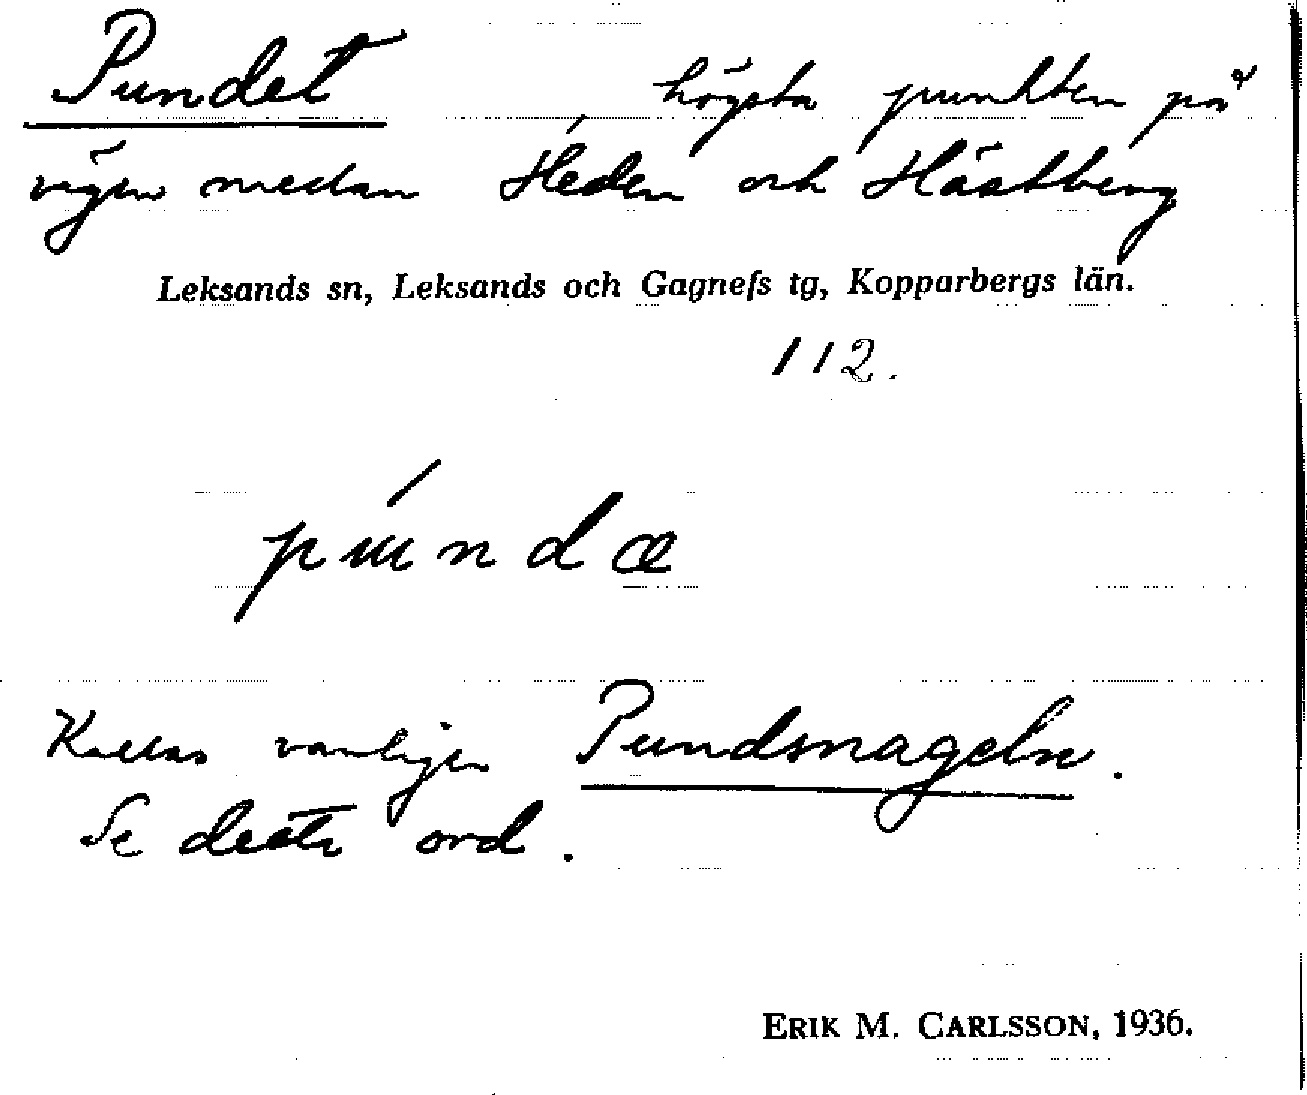 Pundet högsta punkten på
vägen medan Heden och Hästberg
Leksands sn, Leksands och Gagnefs tg, Kopparbergs län.
112.
púndæ
Kallas vanligen Pundsnageln.
Se detta ord.
ERIK M. CARLSSON, 1936.